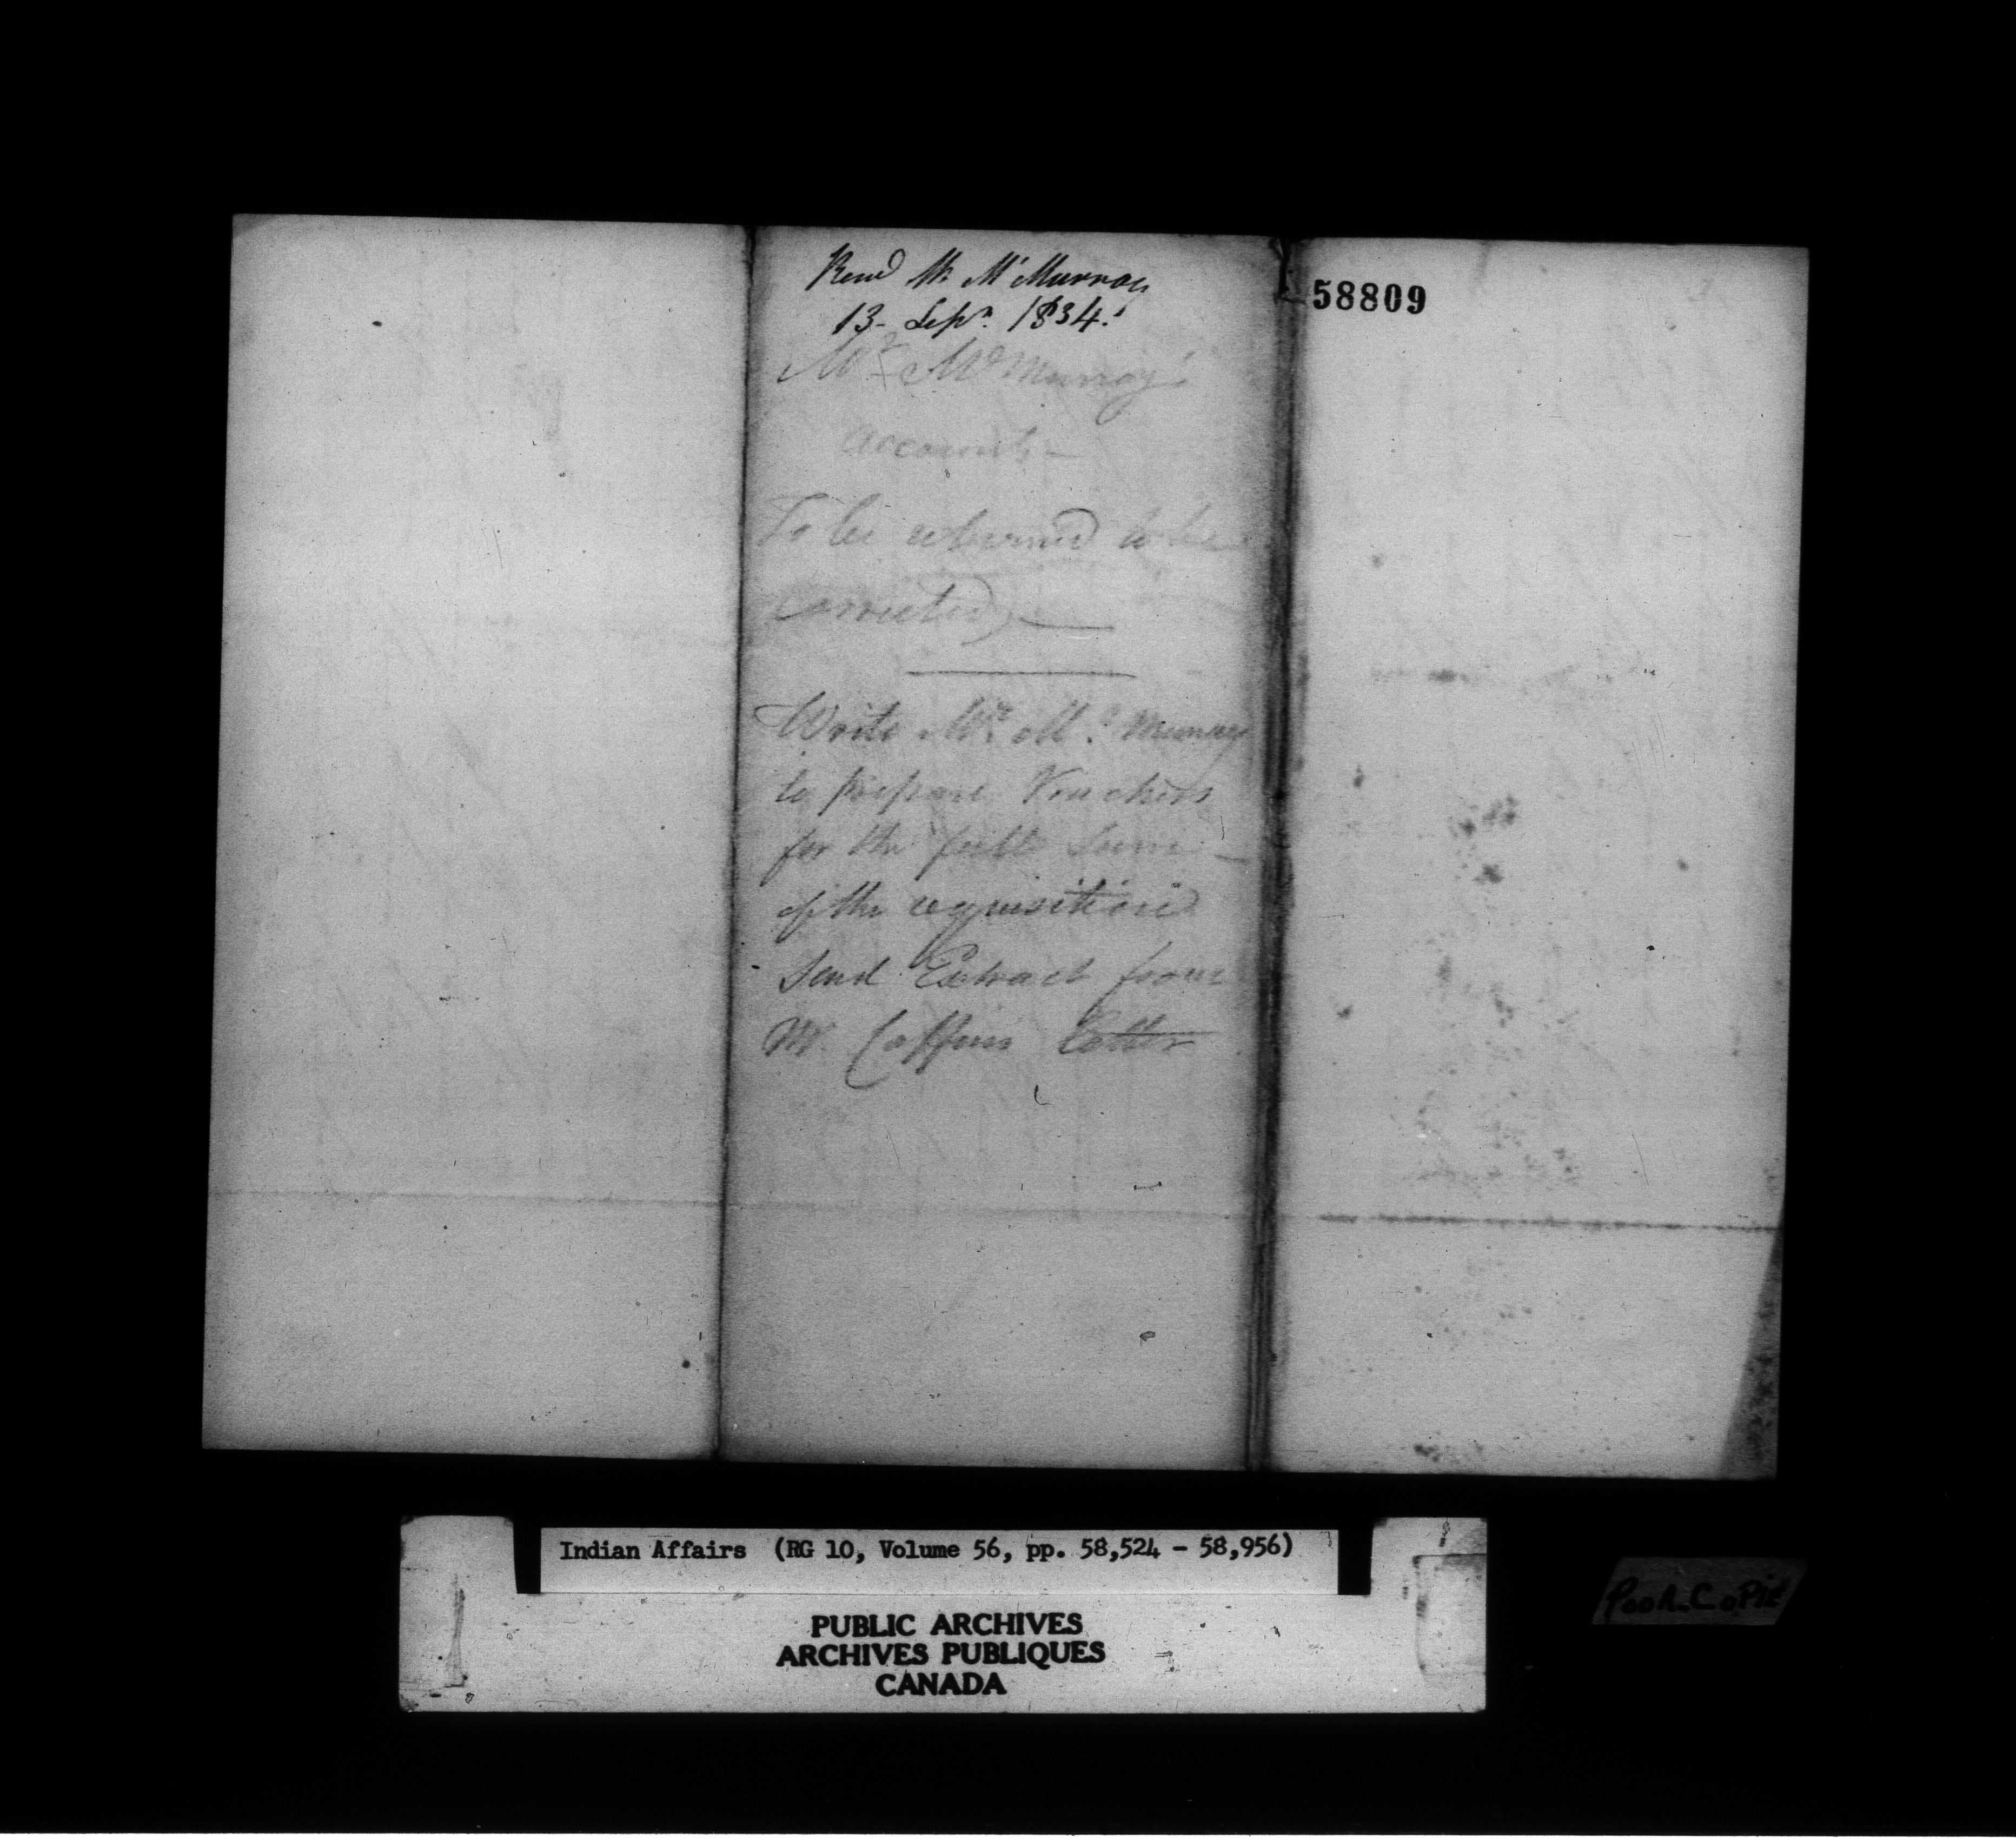 Revd Mr McMurray
13 Sepr. 1834.
58809
Mr. McMurray's
accounts -
To be returned to be
corrected -
Write Mr. McMurray
to prepare Vouchers
for the full Sum -
of the requisition
Send Extract from
Mr. Coffins Letter
Indian Affairs (RG 10, Volume 56, pp. 58,524 - 58,956)
PUBLIC ARCHIVES
ARCHIVES PUBLIQUES
CANADA
POOR COPIE